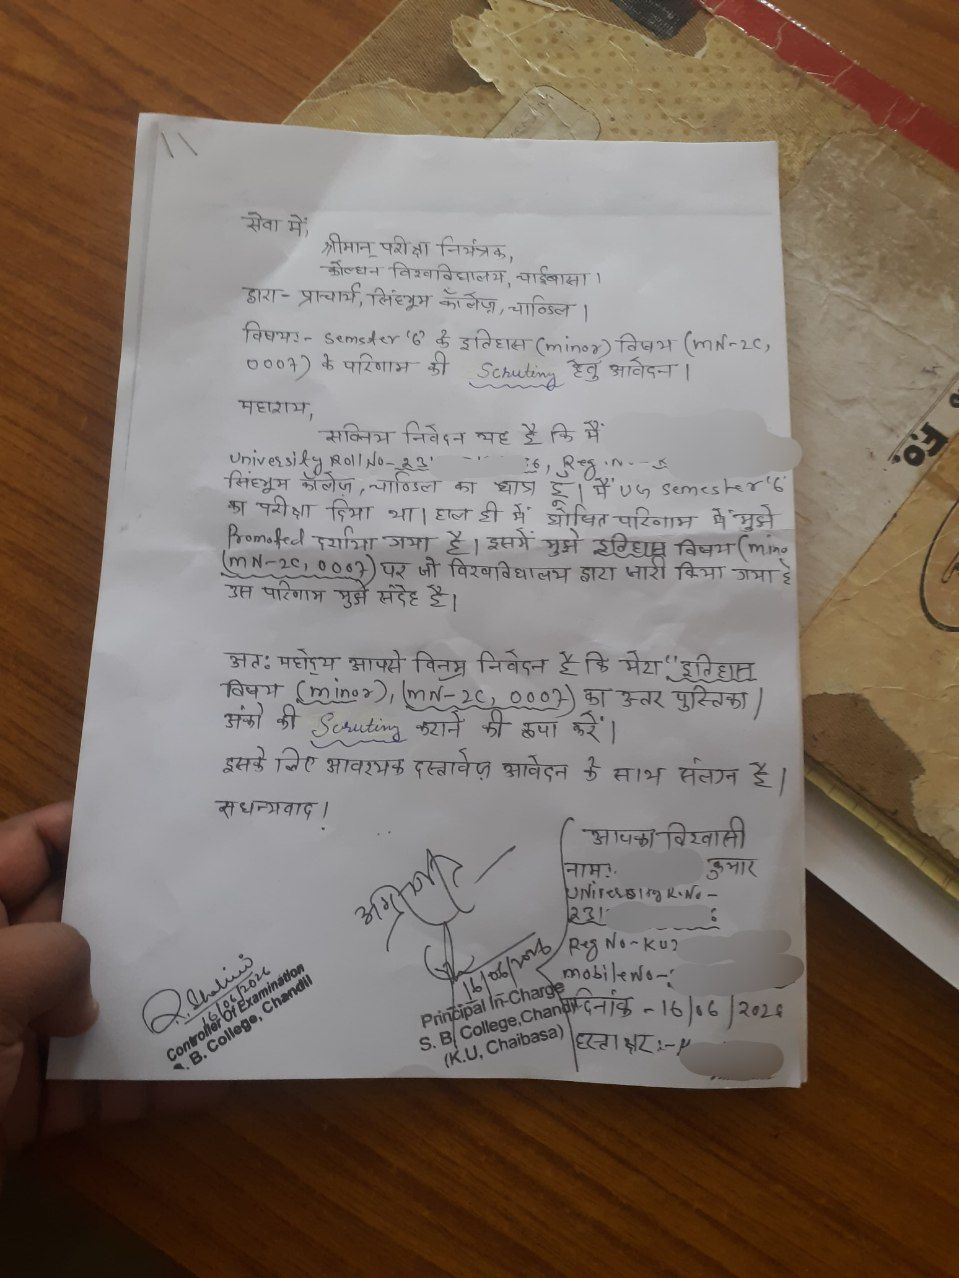 सेवा में,
श्रीमान् परीक्षा नियंत्रक,
कोल्हान विश्वविद्यालय, चाईबासा।
द्वारा- प्राचार्य, सिंहभूम कॉलेज़, चाण्डिल।
विषय:- Semster '6' के इतिहास (minor) विषय (MN-2C,
0007) के परिणाम की Scrutiny हेतु आवेदन।
महाशय,
सविनय निवेदन यह है कि मैं
University Roll No- 231 26, Reg. No.-
सिंहभूम कॉलेज़, चाण्डिल का छात्र हूँ। मैं UG Semester '6'
का परीक्षा दिया था। हाल ही में घोषित परिणाम में मुझे
Promoted दर्शाया गया है। इसमें मुझे इतिहास विषय (mino
(MN-2C, 0007) पर जो विश्वविद्यालय द्वारा जारी किया गया है
उस परिणाम मुझे संदेह है।
अतः महोदय आपसे विनम्र निवेदन है कि मेरा "इतिहास
विषय (minor), (MN-2C, 0007) का उत्तर पुस्तिका/
अंको की Scrutiny कराने की कृपा करें।
इसके लिए आवश्यक दस्तावेज़ आवेदन के साथ संलग्न है।
सधन्यवाद!
आपका विश्वासी
नाम:- कुमार
University R.No-
231
Reg No- KU
mobile No-
दिनांक - 16/06/2026
हस्ताक्षर:-
अग्रसारित
16/06/2026
Principal In-Charge
S. B. College, Chandil
(K.U. Chaibasa)
16/06/2026
Controller Of Examination
. B. College, Chandil